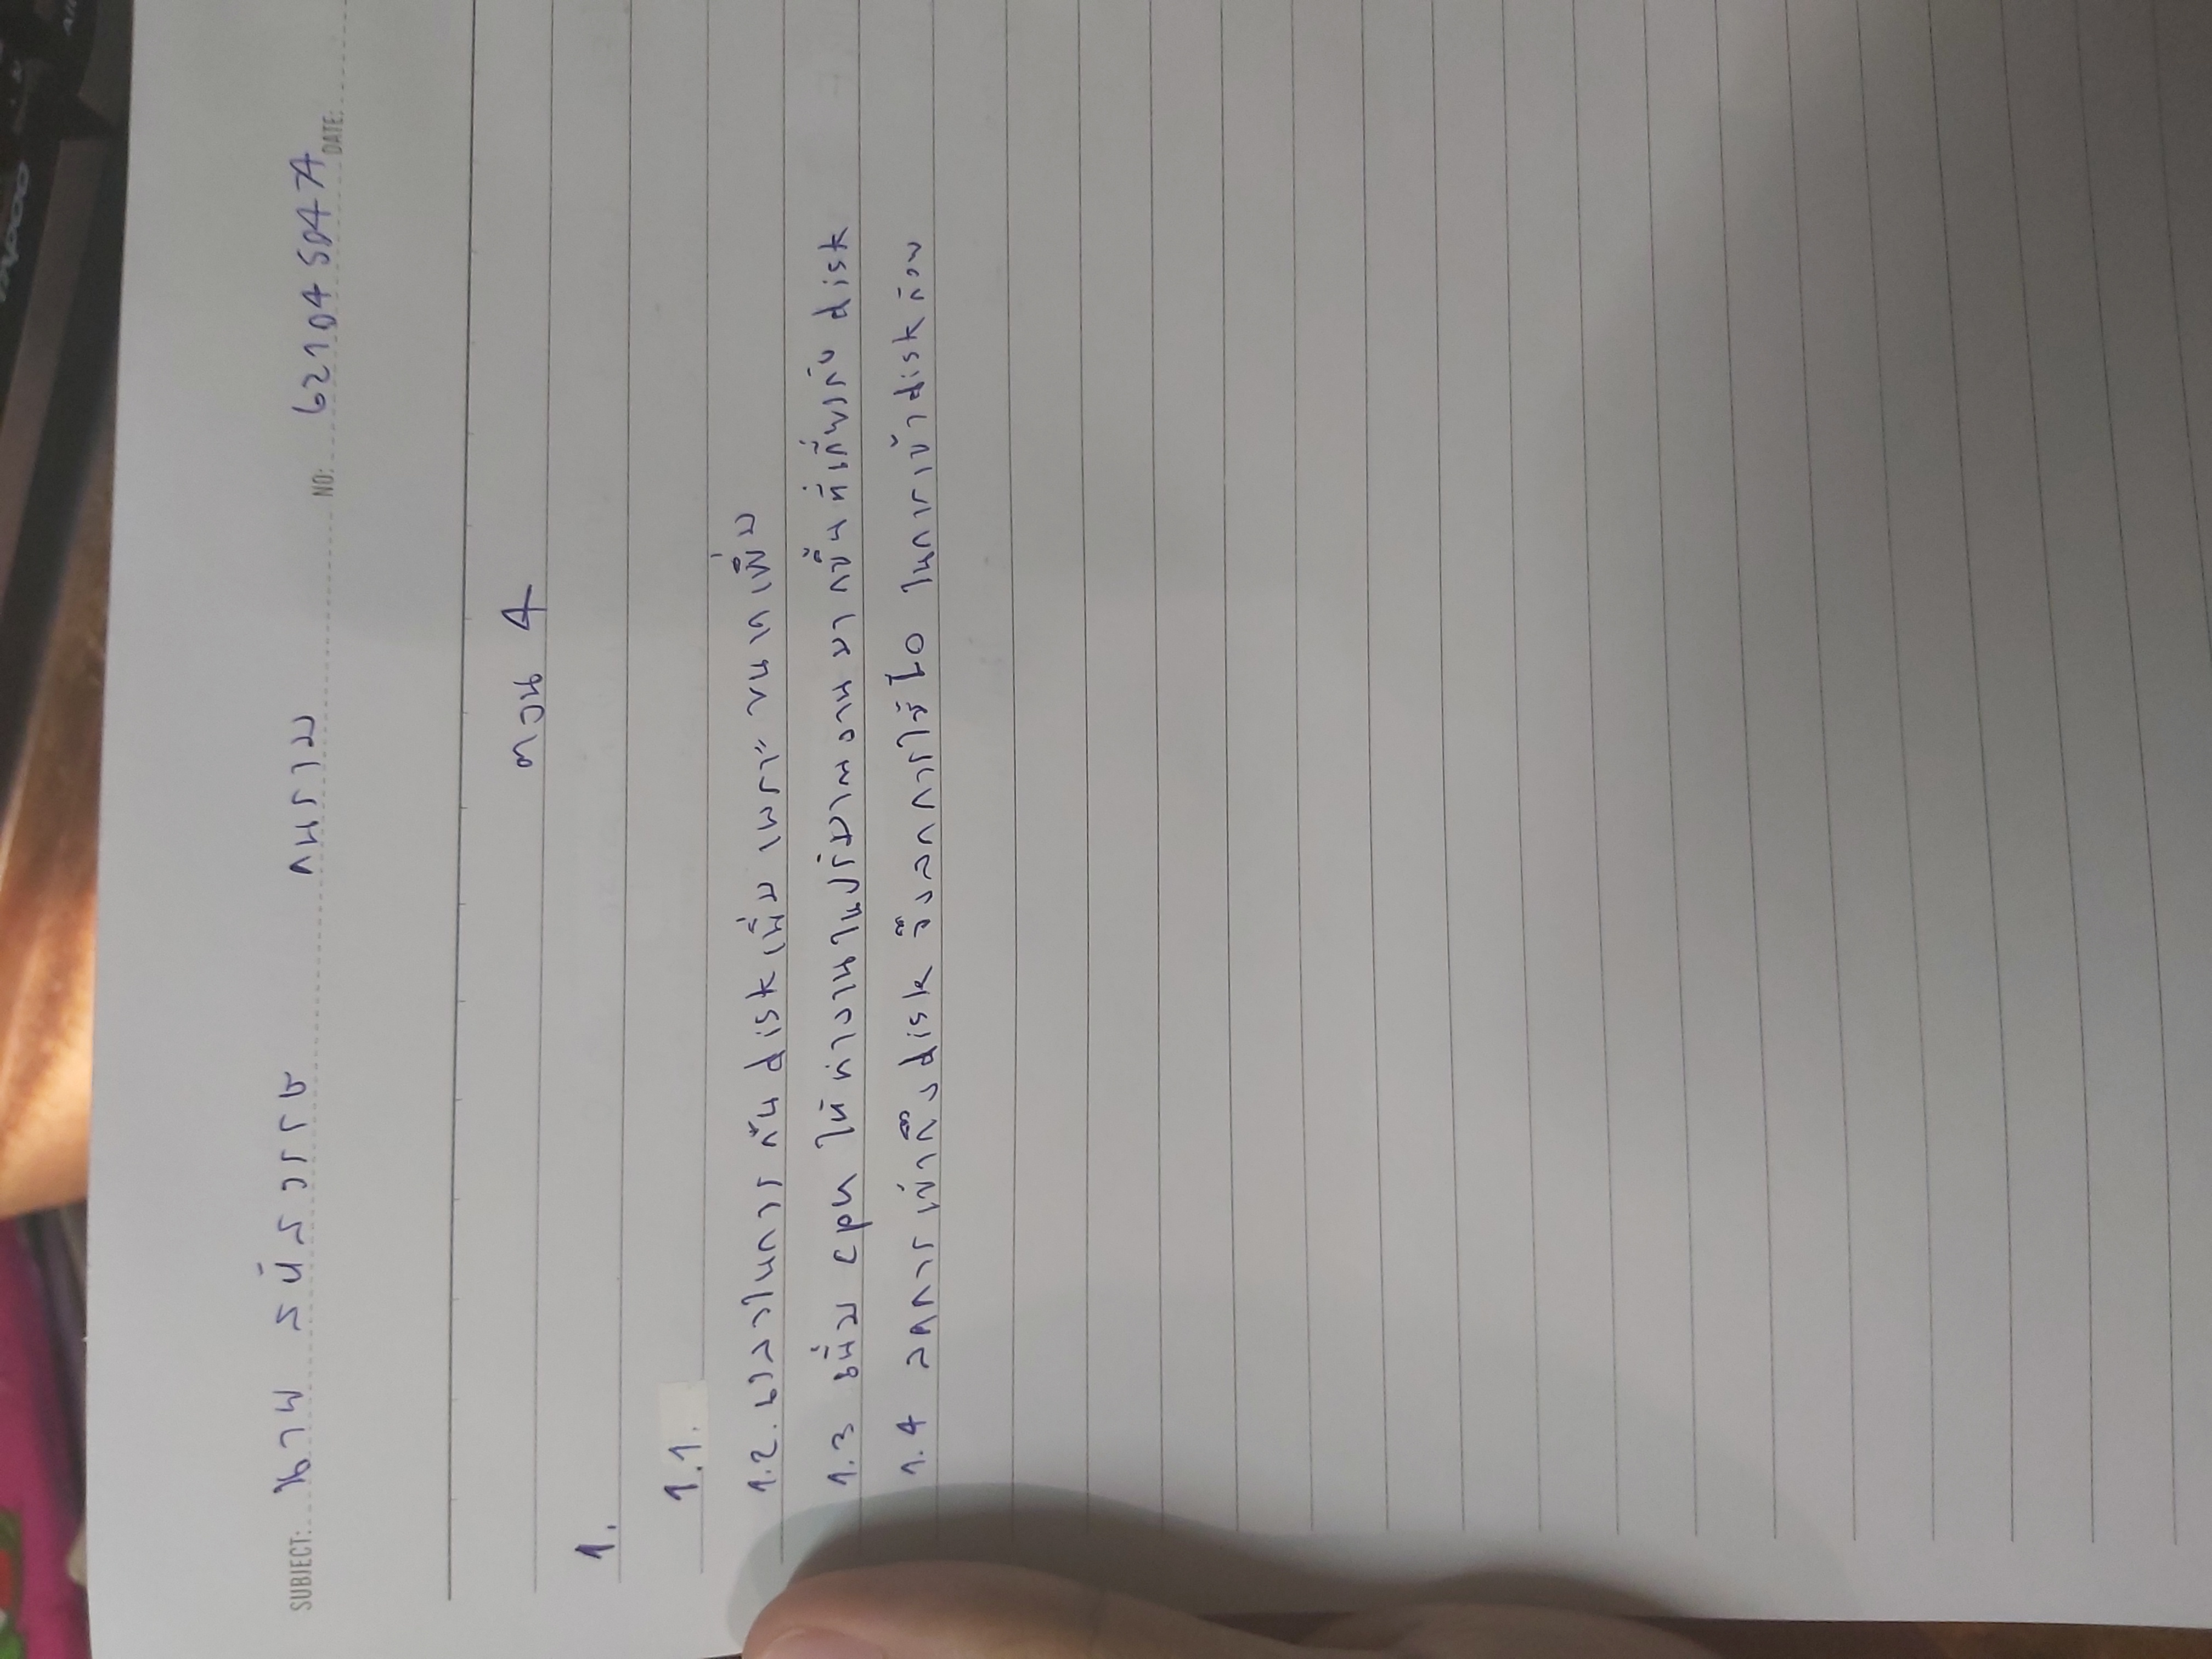 SUBJECT: นาย สหัสวรรษ คนราม NO: 621045047A DATE:
ตอน 4
1.
1.1.
1.2. เวลาในการค้น disk เพิ่ม เพราะ ขนาดเพิ่ม
1.3 เพิ่ม cpu ให้ทำงานในปริมาณงานมากขึ้นที่เกี่ยวกับ disk
1.4 ลดการเข้าถึง disk จึงลดการใช้ IO ในการเข้า disk ด้วย